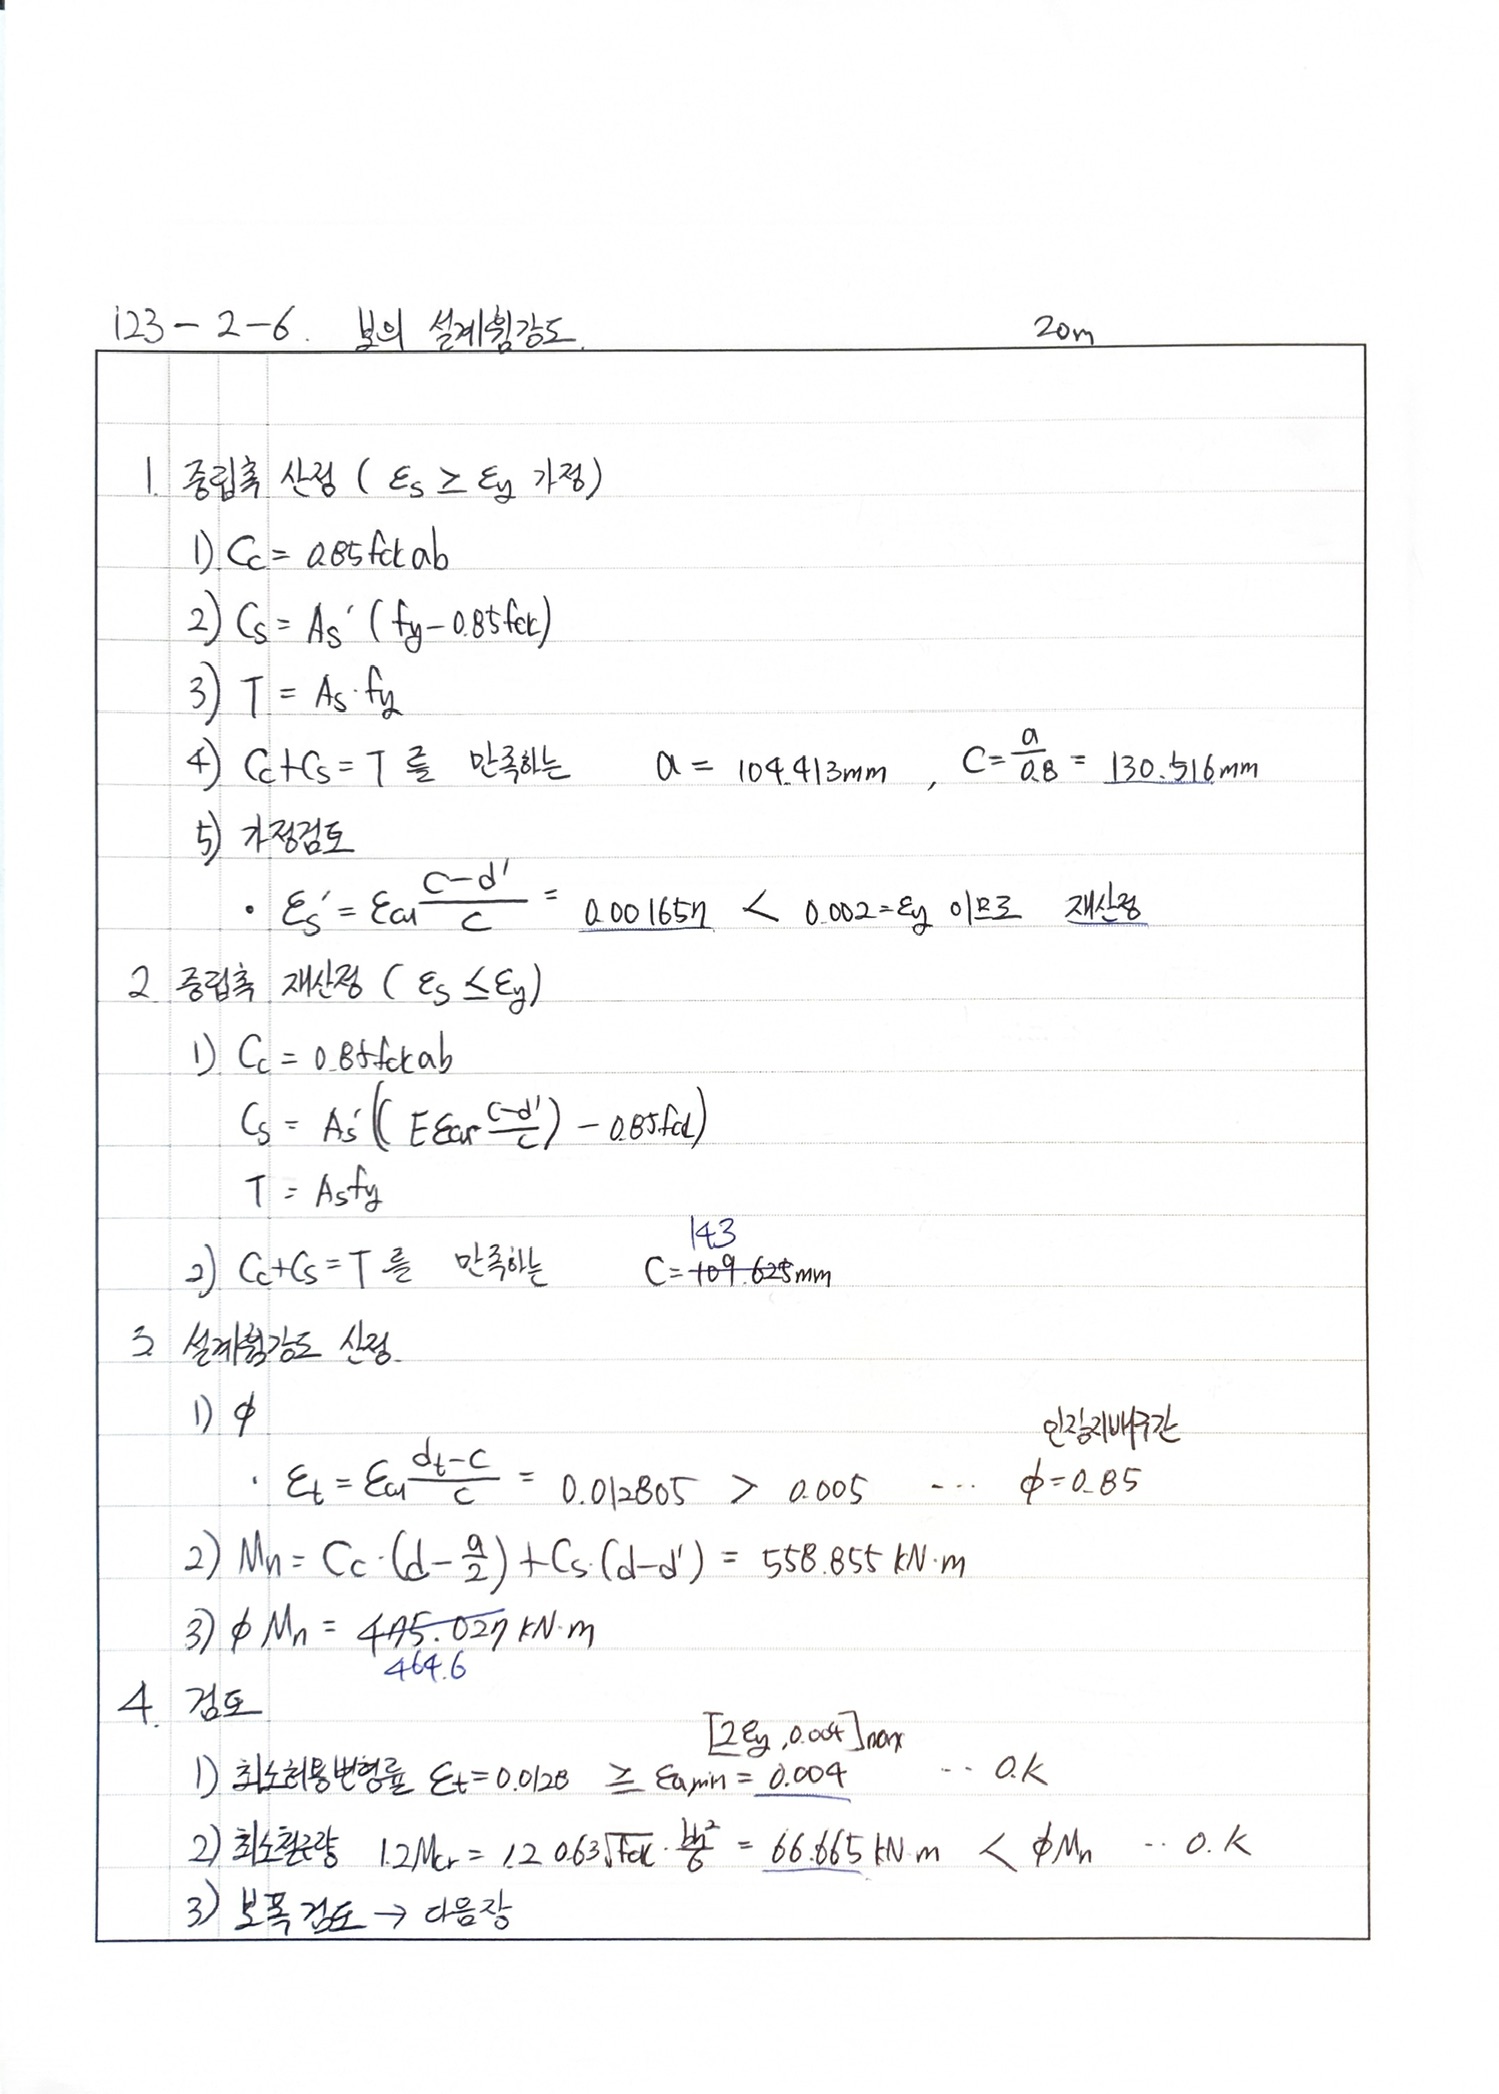 123-2-6. 보의 설계휨강도. 20m
1. 중립축 산정 ( εs ≥ εy 가정)
1) Cc = 0.85fck ab
2) Cs = As' (fy-0.85fck)
3) T = As·fy
4) Cc+Cs = T 를 만족하는 a = 104.413mm , C = a/0.8 = 130.516mm
5) 가정검토
• εs' = εcu (c-d')/c = 0.001657 < 0.002 = εy 이므로 재산정
2 중립축 재산정 ( εs ≤ εy)
1) Cc = 0.85fck ab
Cs = As'((E εcu (c-d')/c) - 0.85fck)
T = Asfy
143
2) Cc+Cs = T 를 만족하는 C = 109.625mm
3. 설계휨강도 산정.
1) φ 인장지배구간
· εt = εcu (dt-c)/c = 0.012805 > 0.005 --- φ = 0.85
2) Mn = Cc·(d-a/2)+Cs·(d-d') = 558.855 kN·m
3) φMn = 475.027 kN·m
464.6
4. 검토
[2εy, 0.004]max
1) 최소허용변형률 εt = 0.0128 ≥ εa,min = 0.004 -- O.K
2) 최소철근량 1.2Mcr = 1.2 0.63√fck · bh²/6 = 66.665 kN·m < φMn -- O.K
3) 보폭검토 → 다음장